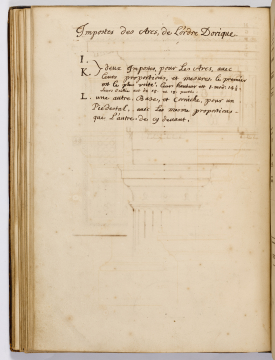 Impostes des Arcs, de L'ordre Dorique
I.
K. } deux Impostes, pour Les Arcs, avec
Leurs proportions, et mesures le premier
est le plus usité. leur hauteur est 1. mod.
L. une autre Base, et Corniche, pour un
Piedestal, avec Les mesmes proportions
que L'autre de cy devant.